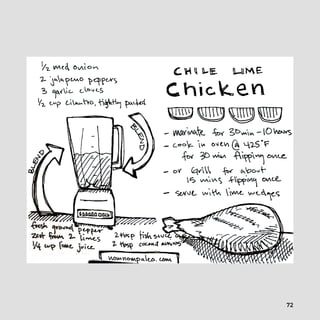 ½ med onion
2 jalapeno peppers
3 garlic cloves
½ cup cilantro, tightly packed
BLEND
BLEND
fresh ground pepper
zest from 2 limes
¼ cup lime juice
2 tbsp fish sauce
2 tbsp coconut aminos
nomnompaleo.com
CHILE LIME
Chicken
- marinate for 30 min - 10 hours
- cook in oven @ 425°F
for 30 min flipping once
- or Grill for about
15 mins flipping once
- serve with lime wedges
72